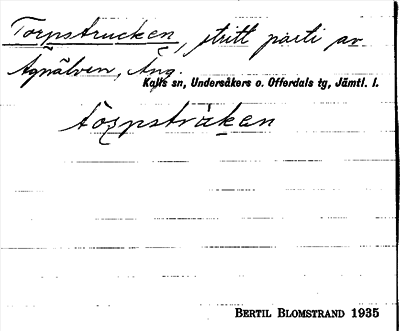 Torpstrucken, stritt parti av
Agnälven, Äng.
Kalls sn, Undersåkers o. Offerdals tg, Jämtl. l.
tòrpstråken
BERTIL BLOMSTRAND 1935